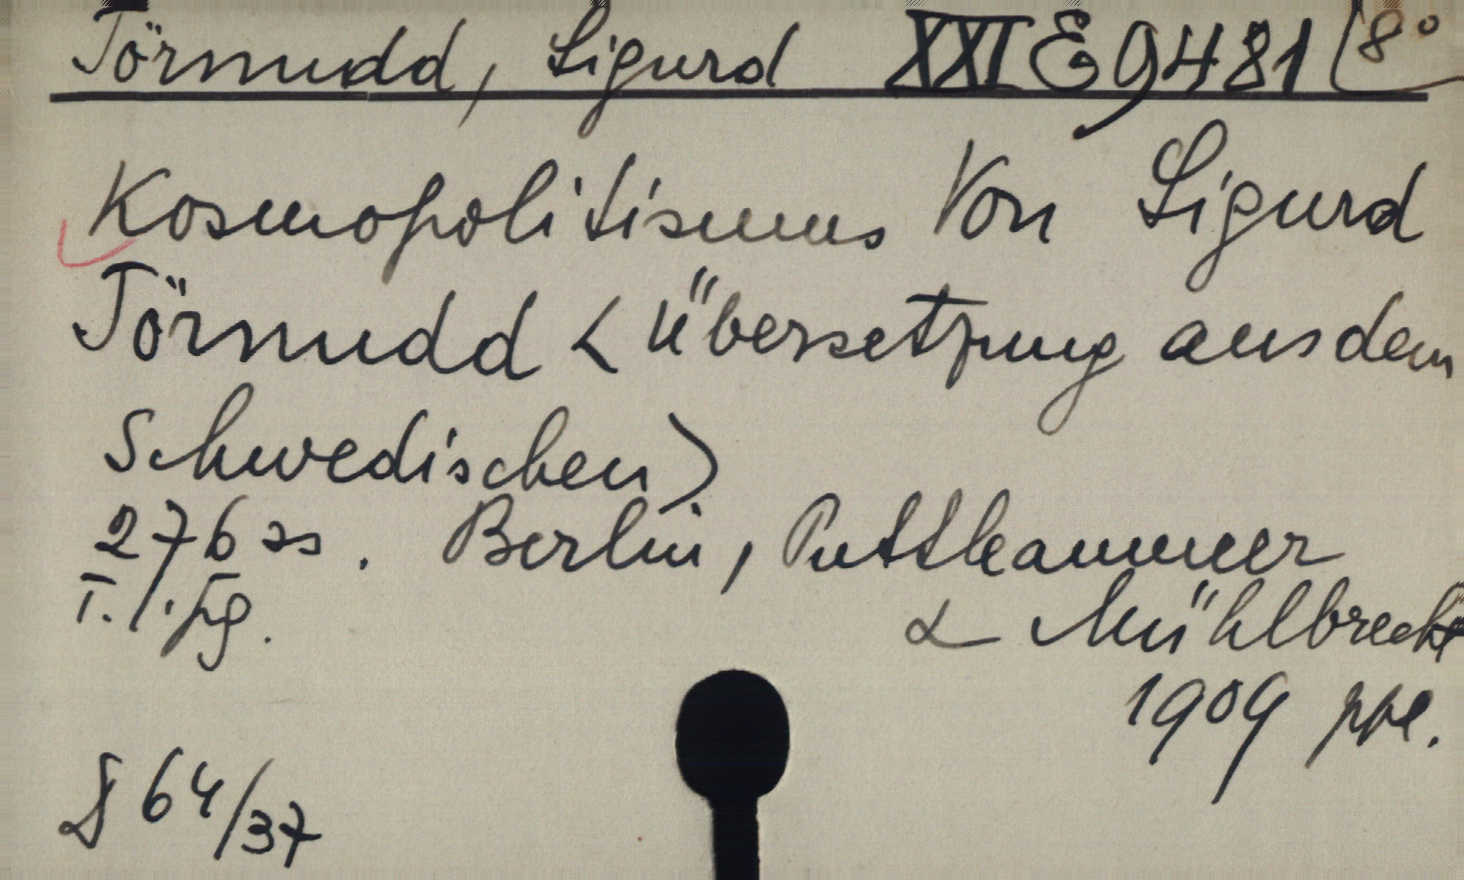 Törnudd, Sigurd XXI E 9481 8°
Kosmopolitismus Von Sigurd
Törnudd < Übersetzung aus dem
Schwedischen >
276 ss. Berlin, Puttkammer
T. / . fg.
& Mühlbrecht
1909 ppe.
64/37